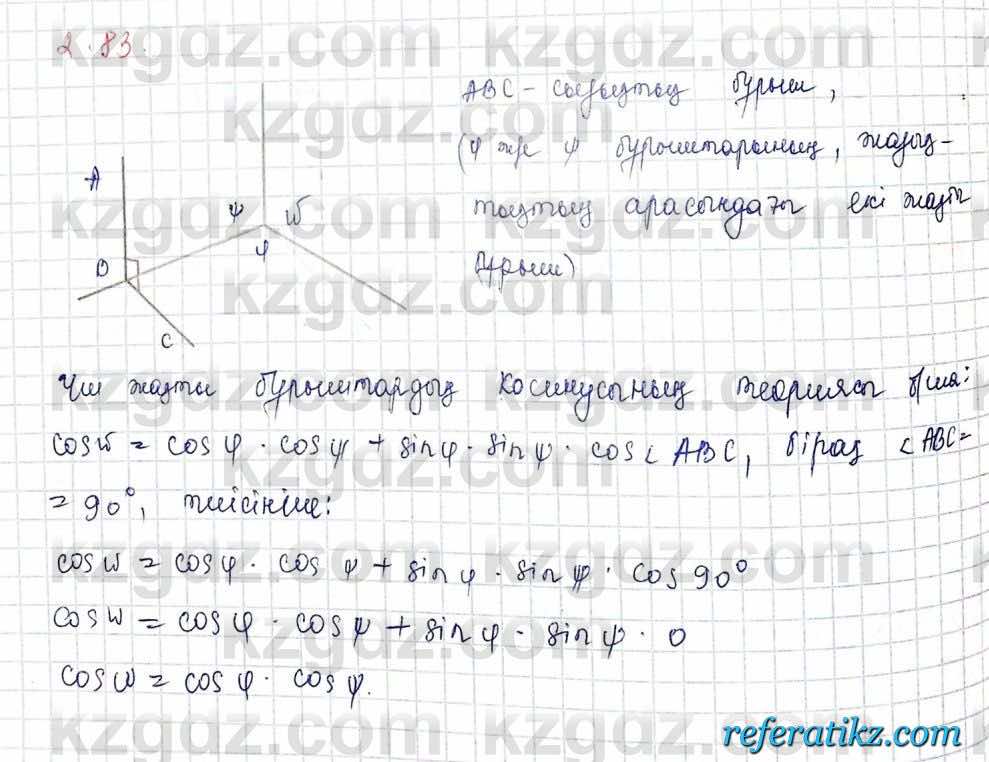 2.83.
ABC - сызықтық бұрыш,
(φ және ψ бұрыштарының, жазық-
тықтың арасындағы екі жақты
бұрыш)
A
B
C
ψ
ω
φ
Үш жақты бұрыштардың косинусының теориясы б/ша:
cos ω = cos φ · cos ψ + sin φ · sin ψ · cos < ABC, бірақ < ABC =
= 90°, тиісінше:
cos ω = cos φ · cos ψ + sin φ · sin ψ · cos 90°
cos ω = cos φ · cos ψ + sin φ · sin ψ · 0
cos ω = cos φ · cos ψ.
kzgdz.com
referatikz.com